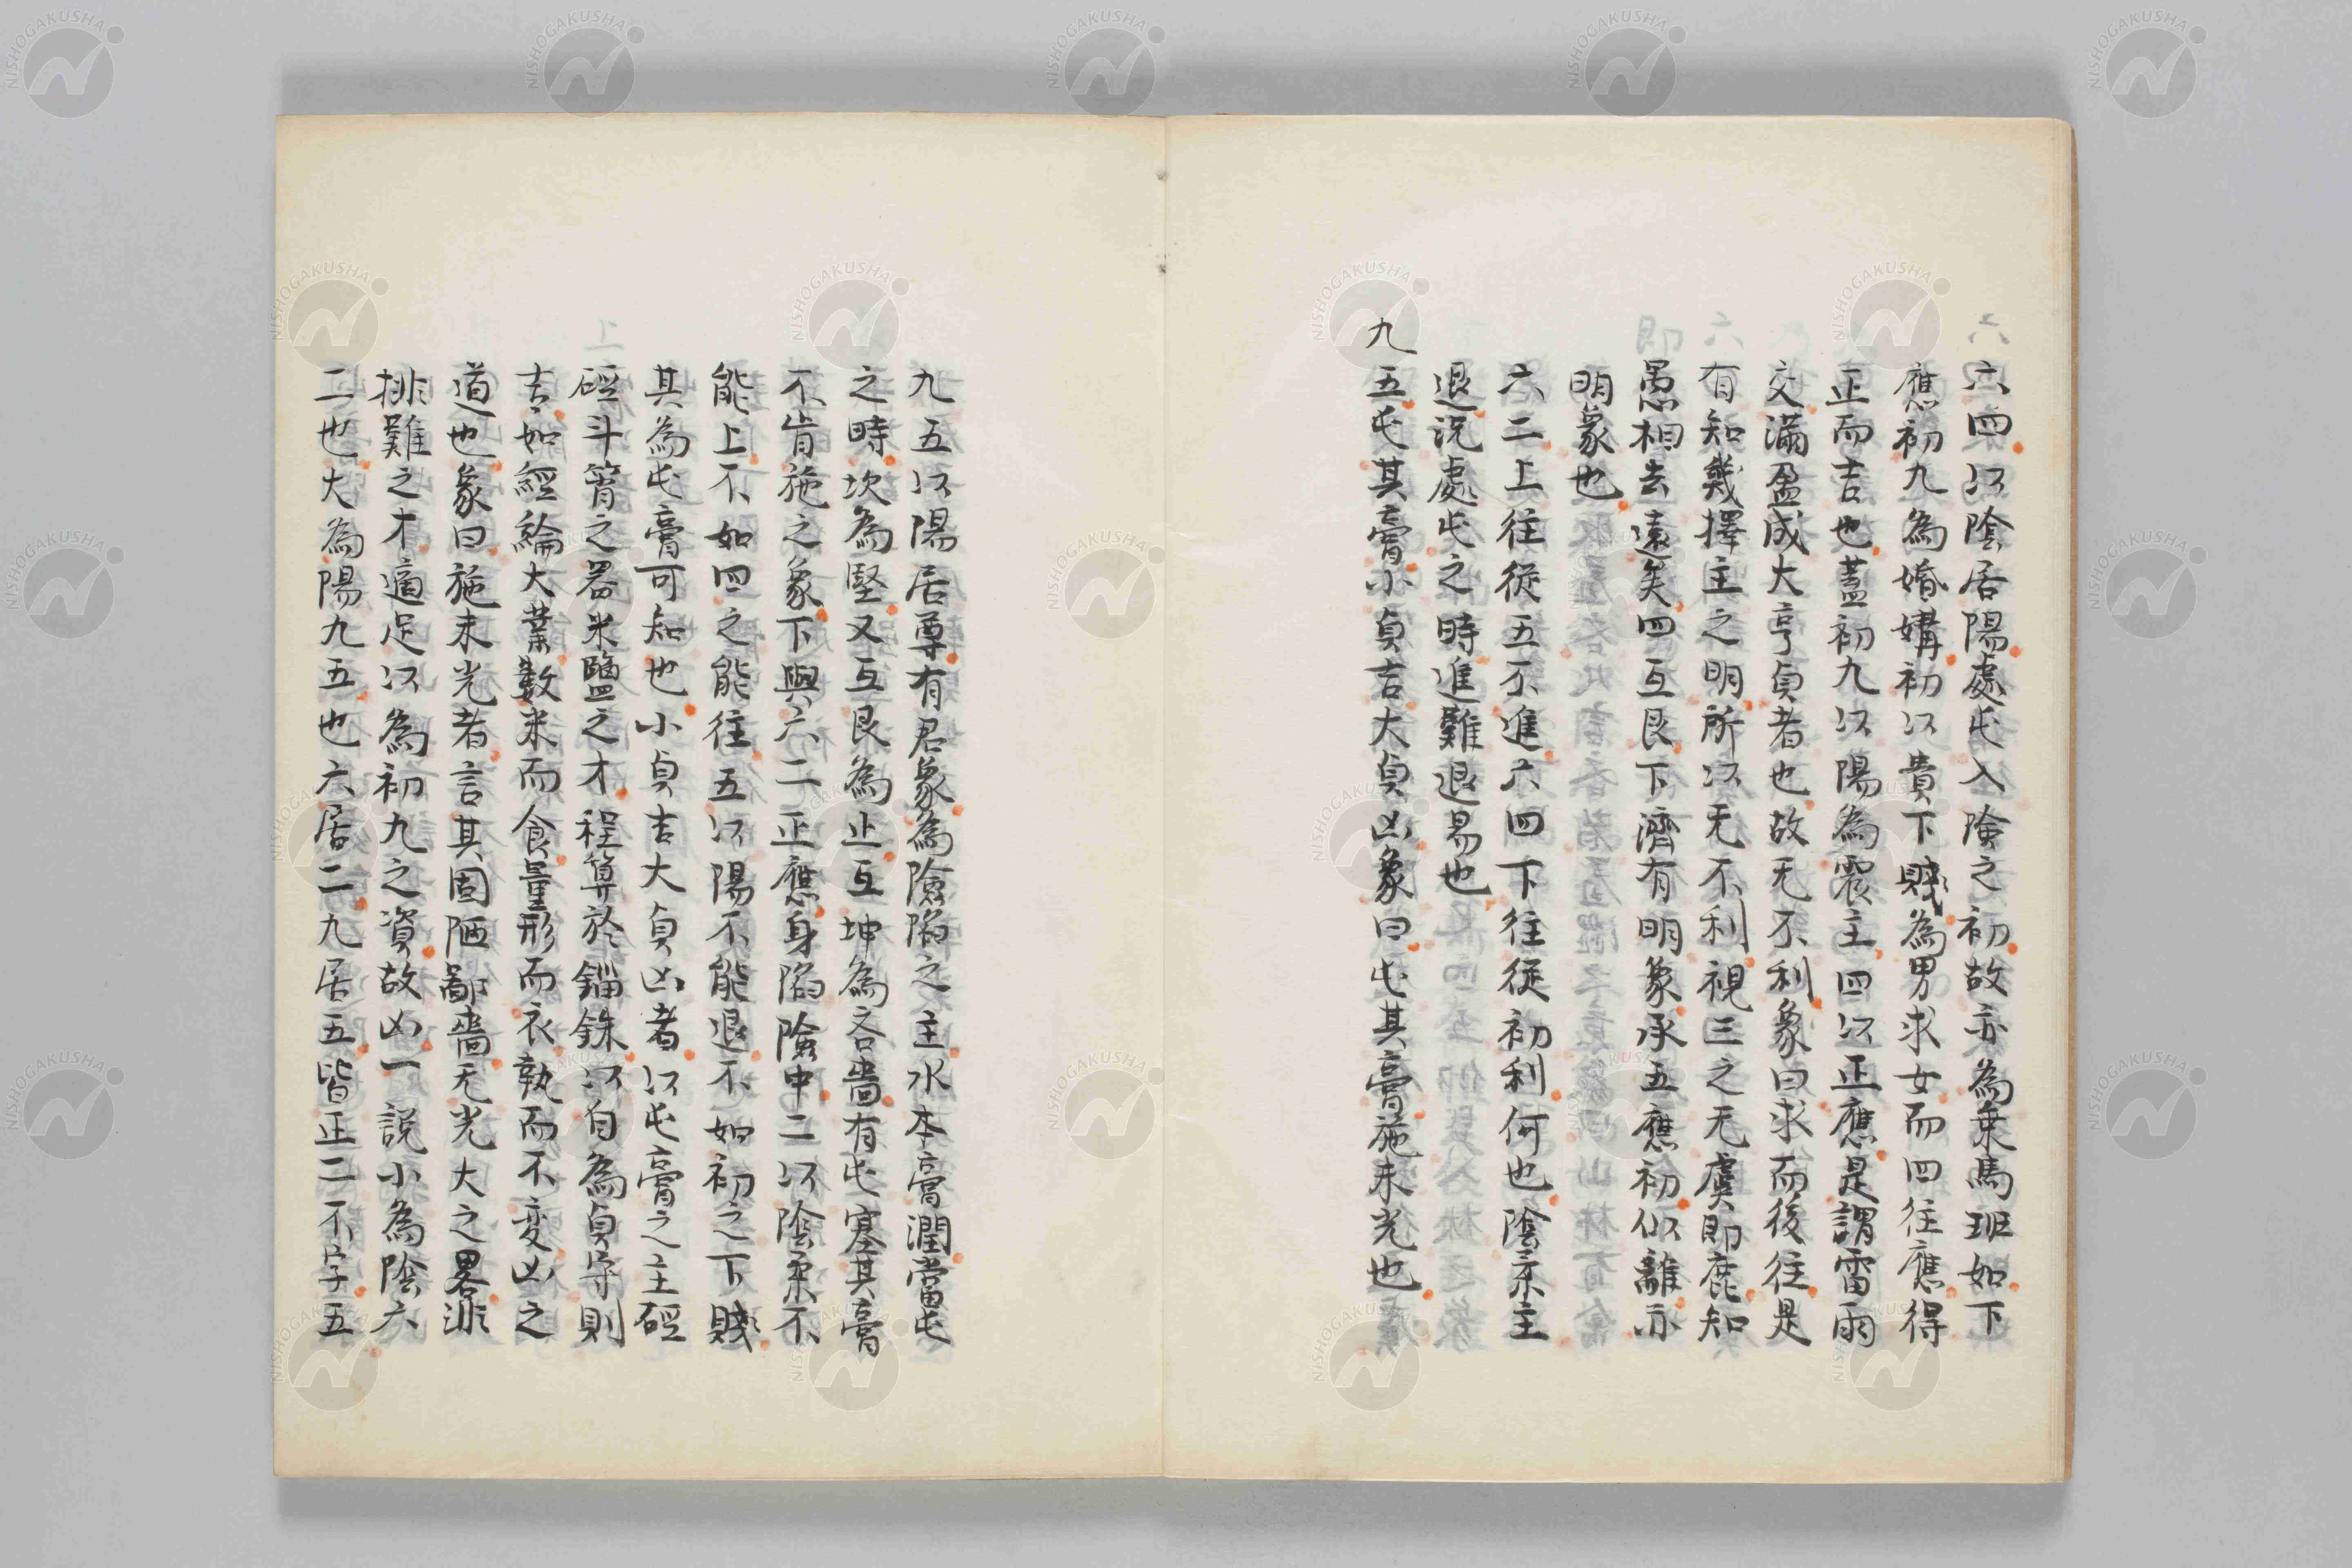 六四以陰居陽處屯入險之初故亦為乗馬班如下
應初九為婚媾初以貴下賤為男求女而四往應得
正而吉也蓋初九以陽為震主四以正應是謂雷雨
交満盈成大亨貞者也故无不利象曰求而後往是
有知幾擇主之明所以无不利視三之无虞即鹿知
愚相去遠矣四互艮下濟有明象承五應初似離亦
明象也
六二上往從五不進六四下往從初利何也陰柔主
退況處屯之時進難退易也
九五屯其膏小貞吉大貞凶象曰屯其膏施未光也
九五以陽居尊有君象為險陷之主水本膏潤當屯
之時坎為堅又互艮為止互坤為吝嗇有屯塞其膏
不肯施之象下與六二正應身陷險中二以陰柔不
能上不如四之能往五以陽不能退不如初之下賤
其為屯膏可知也小貞吉大貞凶者以屯膏之主硜
硜斗筲之器米鹽之才程算於錙銖以自為貞守則
吉如經綸大業數米而食量形而衣執而不変凶之
道也象曰施未光者言其固陋鄙嗇无光大之畧非
排難之才適足以為初九之資故凶一説小為陰六
二也大為陽九五也六居二九居五皆正二不字五
NISHOGAKUSHA